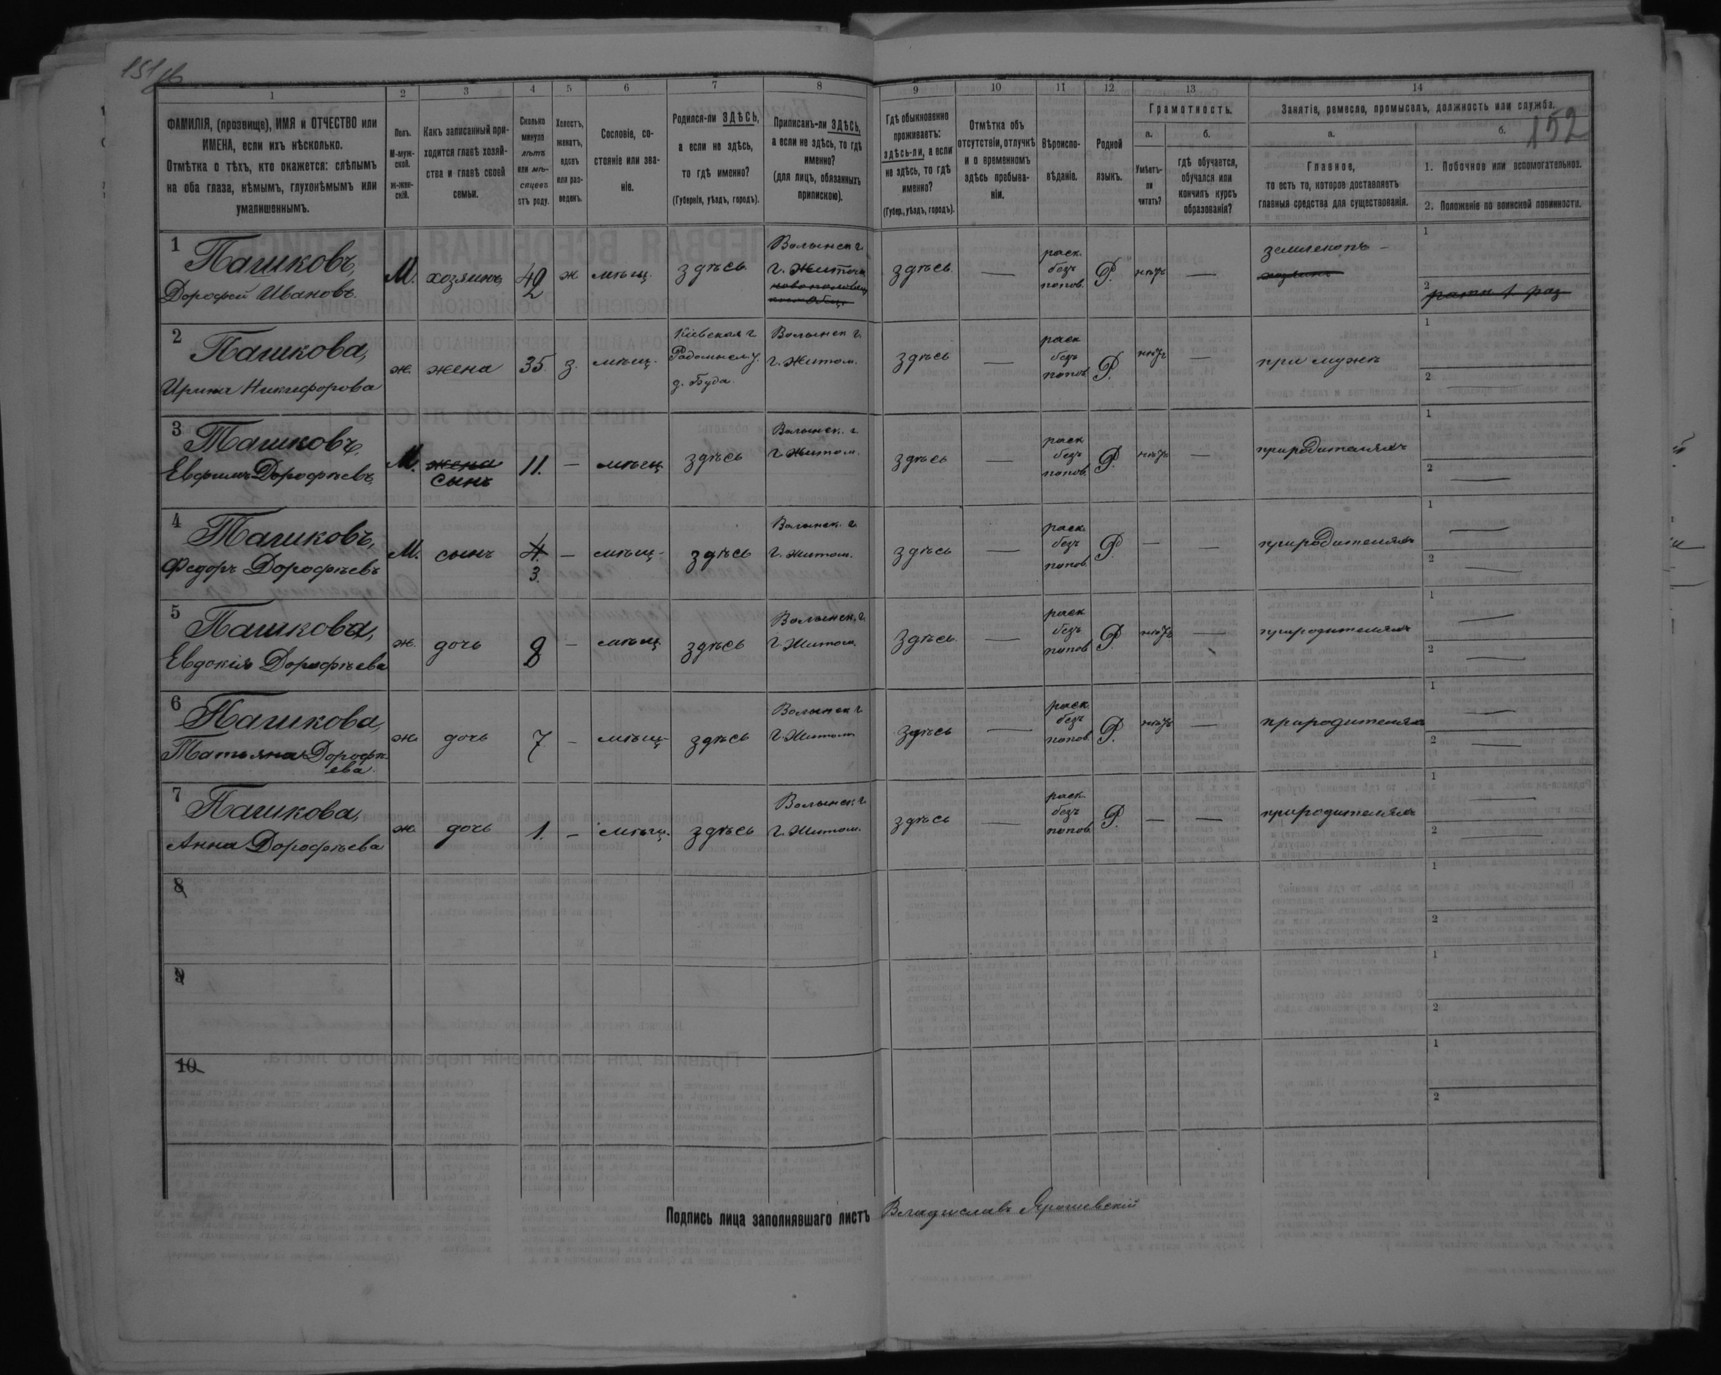 151 об
152
1 2 3 4 5 6 7 8 9 10 11 12 13 14
ФАМИЛІЯ, (прозвище), ИМЯ и ОТЧЕСТВО или
ИМЕНА, если ихъ нѣсколько.
Отмѣтка о тѣхъ, кто окажется: слѣпымъ
на оба глаза, нѣмымъ, глухонѣмымъ или
умалишеннымъ.
Полъ.
М-муж-
ской.
Ж-жен-
скій.
Какъ записанный при-
ходится главѣ хозяй-
ства и главѣ своей
семьи.
Сколько
минуло
лѣтъ
или мѣ-
сяцевъ
отъ роду.
Холостъ,
женатъ,
вдовъ
или раз-
веденъ.
Сословіе, со-
стояніе или зва-
ніе.
Родился-ли ЗДѢСЬ,
а если не здѣсь,
то гдѣ именно?
(Губернія, уѣздъ, городъ).
Приписанъ-ли ЗДѢСЬ,
а если не здѣсь, то гдѣ
именно?
(для лицъ, обязанныхъ
припискою).
Гдѣ обыкновенно
проживаетъ:
здѣсь-ли, а если
не здѣсь, то гдѣ
именно?
(Губер., уѣздъ, городъ).
Отмѣтка объ
отсутствіи, отлучкѣ
и о временномъ
здѣсь пребыва-
ніи.
Вѣроиспо-
вѣданіе.
Родной
языкъ.
Грамотность.
а. б.
Умѣетъ-
ли
читать?
гдѣ обучается,
обучался или
кончилъ курсъ
образованія?
Занятіе, ремесло, промыселъ, должность или служба.
а. б.
Главное,
то есть то, которое доставляетъ
главныя средства для существованія.
1. Побочное или вспомогательное.
2. Положеніе по воинской повинности.
1 Пашковъ,
Дорофей Ивановъ
М. хозяинъ 42 ж мѣщ. здѣсь
Волынск г.
г. Житом
здѣсь — раск. безъ попов. Р. нѣтъ —
землекопъ —
хозяинъ
1
2 ратн 1 раз
2 Пашкова,
Ирина Никифорова
ж. жена 35 з. мѣщ.
Кіевская г
Радомысл у.
д. Буда
Волынск г.
г. Житом.
здѣсь — раск. безъ попов Р. нѣтъ — при мужѣ
1
2 —
3 Пашковъ,
Евфимъ Дорофѣевъ
М. жена
сынъ
11. — мѣщ здѣсь
Волынск. г
г Житом.
здѣсь — раск безъ попов Р. нѣтъ — при родителяхъ
1
2 —
4 Пашковъ,
Федоръ Дорофѣевъ
М. сынъ 4
3.
— мѣщ- здѣсь
Волынск. г.
г. Житом.
здѣсь — раск. безъ попов Р. — — при родителяхъ
1 —
2 —
5 Пашкова,
Евдокія Дорофѣева
ж. дочь 8 — мѣщ здѣсь
Волынск. г.
г. Житом.
здѣсь — раск безъ попов Р. нѣтъ — при родителяхъ
1 —
2 —
6 Пашкова,
Татьяна Дорофѣ-
ева.
ж. дочь 7 — мѣщ- здѣсь
Волынск г
г. Житом
здѣсь — раск безъ попов Р. нѣтъ — при родителяхъ
1 —
2 —
7 Пашкова,
Анна Дорофѣева
ж. дочь 1. — мѣщ. здѣсь
Волынск г.
г. Житом.
здѣсь — раск. безъ попов Р. — — при родителяхъ
1 —
2 —
8
1
2
9
1
2
10
1
2
Подпись лица заполнявшаго листъ Владиславъ Ярошевскій